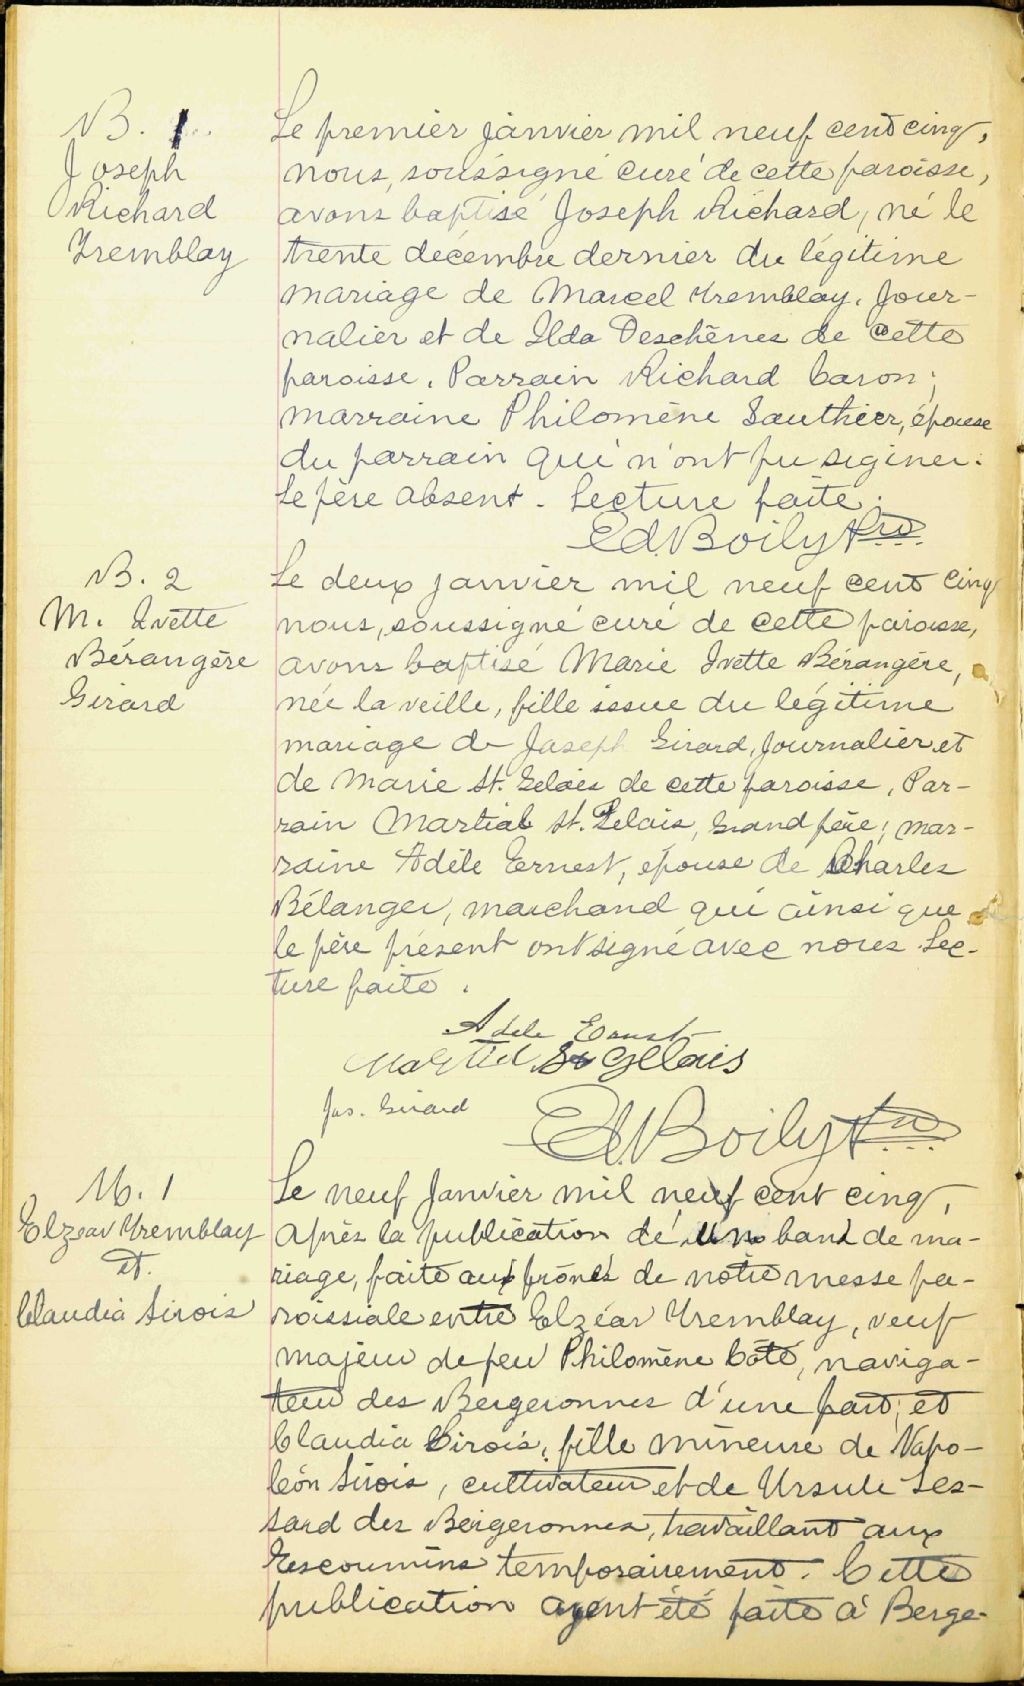 B. 1
Joseph
Richard
Tremblay
Le premier janvier mil neuf cent cinq,
nous, soussigné curé de cette paroisse,
avons baptisé Joseph Richard, né le
trente décembre dernier du légitime
mariage de Marcel Tremblay, jour-
nalier et de Ilda Deschênes de cette
paroisse. Parrain Richard Caron;
marraine Philomène Gauthier, épouse
du parrain qui n'ont pu siginer.
Le père absent. Lecture faite.
Ed. Boily Ptre
B. 2
M. Ivette
Bérangère
Girard
Le deux janvier mil neuf cent cinq
nous, soussigné curé de cette paroisse,
avons baptisé Marie Ivette Bérangère,
née la veille, fille issue du légitime
mariage de Joseph Girard, journalier et
de Marie St. Gelais de cette paroisse, Par-
rain Martial St. Gelais, grand père; mar-
raine Adèle Ernest, épouse de Charles
Bélanger, marchand qui ainsi que
le père présent ont signé avec nous. Lec-
ture faite.
Adele Ernest
Martial St Gelais
Jos. Girard
Ed. Boily Ptre
M. 1
Elzéar Tremblay
et
Claudia Sirois
Le neuf Janvier mil neuf cent cinq,
après la publication de un ban de ma-
riage, faite au prône de notre messe pa-
roissiale entre Elzéar Tremblay, veuf
majeur de feu Philomène Côté, naviga-
teur des Bergeronnes d'une part; et
Claudia Sirois, fille mineure de Napo-
léon Sirois, cultivateur et de Ursule Les-
sard des Bergeronnes, travaillant aux
Escoumins temporairement. Cette
publication ayent été faite à Berge-